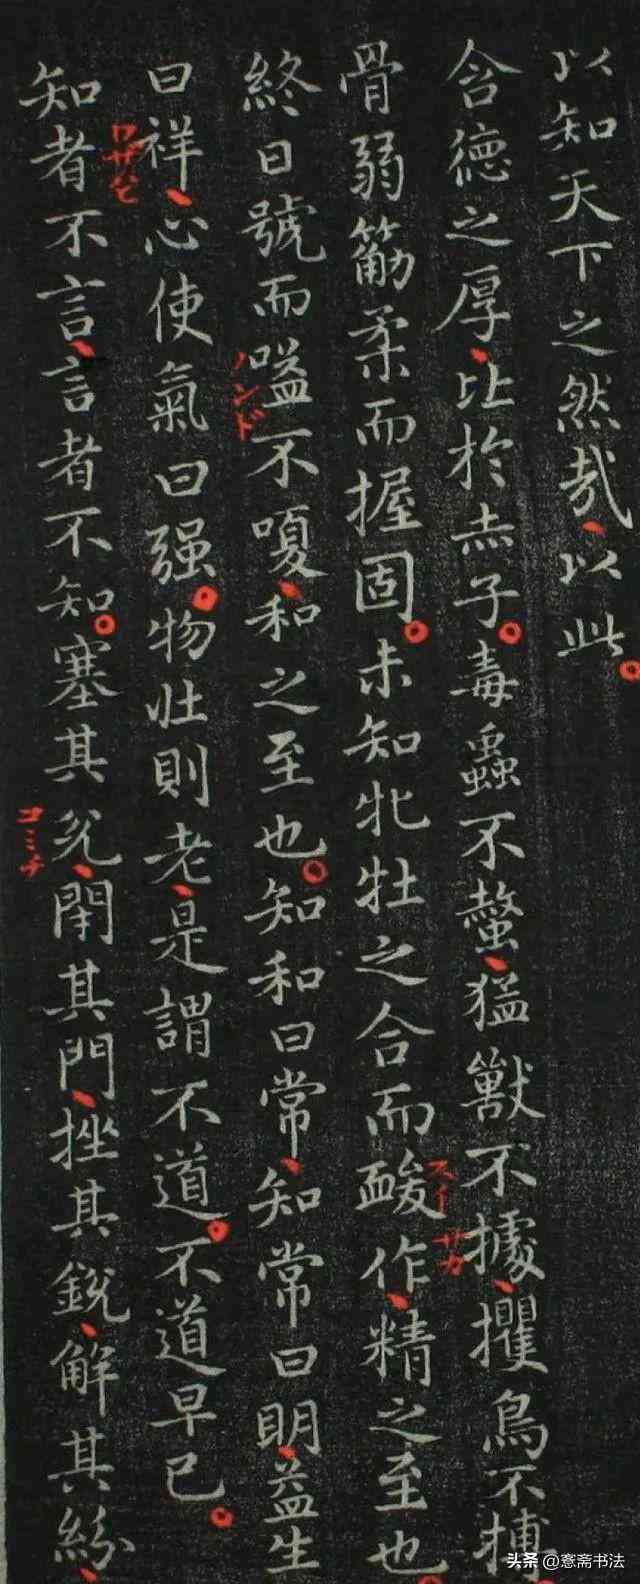 以知天下之然哉以此
含德之厚比於赤子毒蟲不螫猛獸不據攫鳥不搏
骨弱筋柔而握固未知牝牡之合而酸作精之至也
終日號而嗌不嗄和之至也知和曰常知常曰明益生
曰祥心使氣曰强物壯則老是謂不道不道早已
知者不言言者不知塞其兌閉其門挫其銳解其紛
ノンド
コミチ
头条@窓斋书法